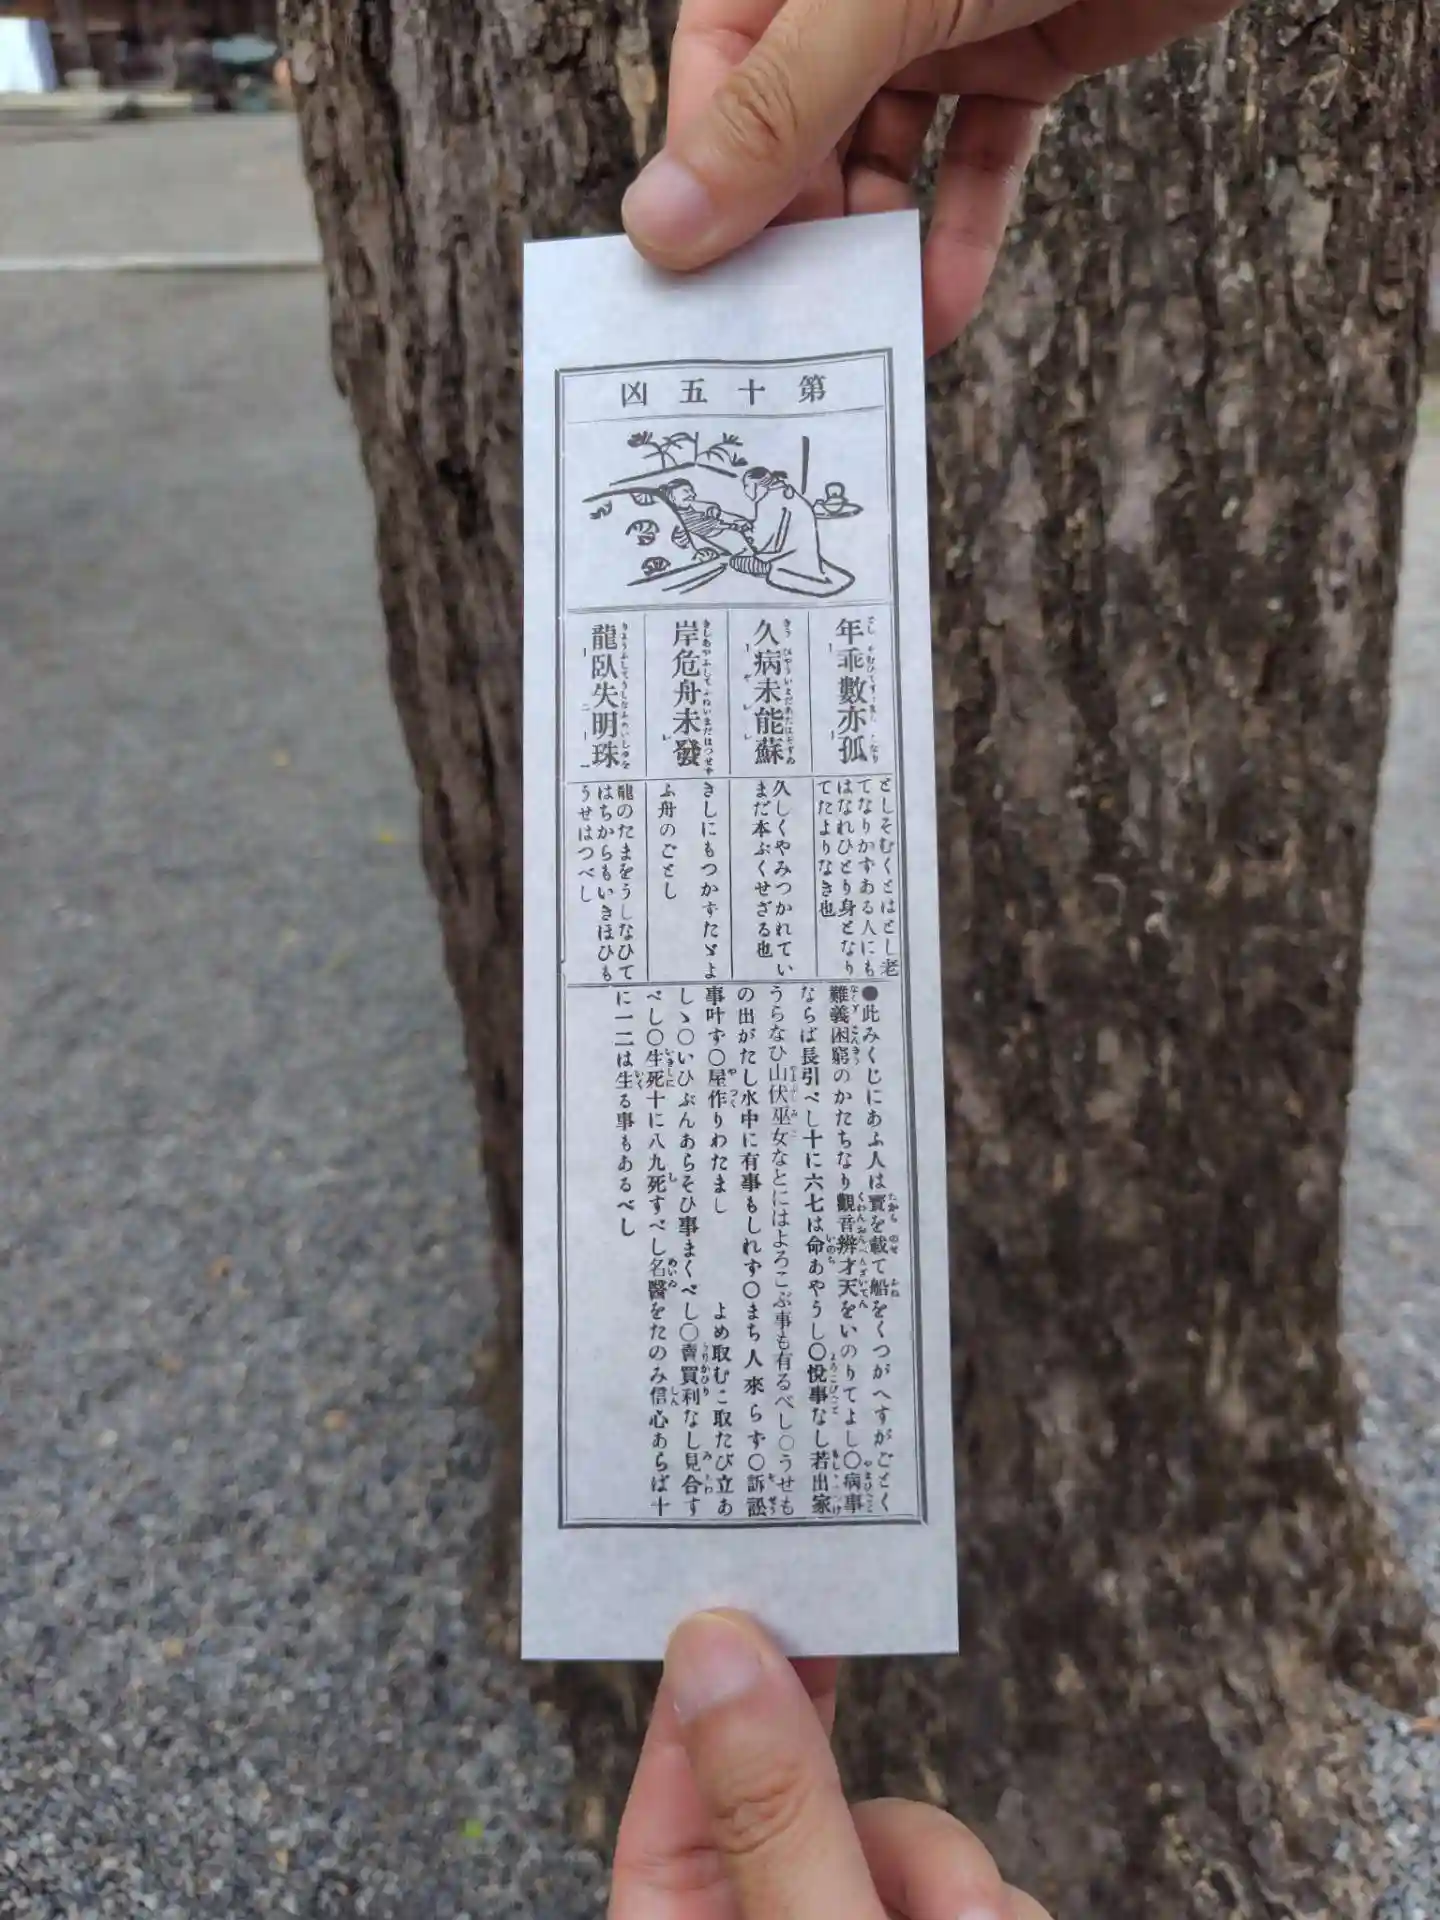 第十五凶
年乖數亦孤
久病未能蘇
岸危舟未發
龍臥失明珠
としそむくとはとし老
てなりかずある人にも
はなれひとり身となり
てたよりなき也
久しくやみつかれてい
まだ本ぶくせざる也
きしにもつかすたゞよ
ふ舟のごとし
龍のたまをうしなひて
はちからもいきほひも
うせはつべし
●此みくじにあふ人は寳を載て船をくつがへすがごとく
難義困窮のかたちなり觀音辨才天をいのりてよし〇病事
ならば長引べし十に六七は命あやうし〇悅事なし若出家
うらなひ山伏巫女なとにはよろこぶ事も有るべし〇うせも
の出がたし水中に有事もしれず〇まち人來らず〇訴訟
事叶ず〇屋作りわたまし よめ取むこ取たび立あ
しゝ〇いひぶんあらそひ事まくべし〇賣買利なし見合す
べし〇生死十に八九死すべし名醫をたのみ信心あらば十
に一二は生る事もあるべし